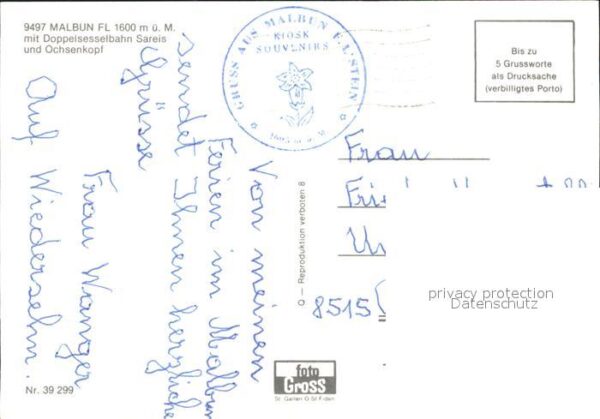 9497 MALBUN FL 1600 m ü. M.
mit Doppelsesselbahn Sareis
und Ochsenkopf
GRUSS AUS MALBUN F.L'STEIN
KIOSK
SOUVENIRS
1605 m ü. M.
Bis zu
5 Grussworte
als Drucksache
(verbilligtes Porto)
Von meinen
Ferien im Malbun
sendet Ihnen herzliche
Grüsse
Frau Wanger
Auf Wiedersehn.
Frau
8515
— Reproduktion verboten 8
privacy protection
Datenschutz
foto
Gross
St. Gallen
Nr. 39 299